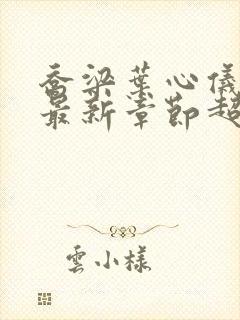 喬梁葉心儀
最新章節超
雲小樣